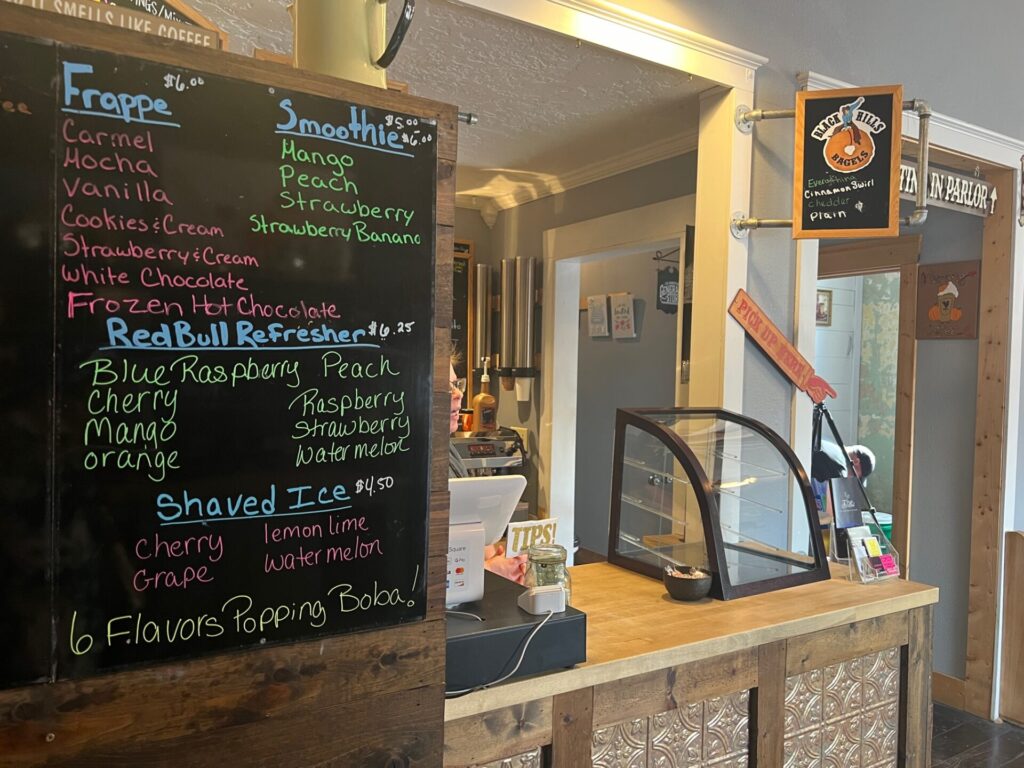 SMELLS LIKE COFFEE
Frappe $6.00
Carmel
Mocha
Vanilla
Cookies & Cream
Strawberry & Cream
White Chocolate
Frozen Hot Chocolate
Smoothie $5.00
$6.00
Mango
Peach
Strawberry
Strawberry Banana
Red Bull Refresher $6.25
Blue Raspberry
Cherry
Mango
orange
Peach
Raspberry
Strawberry
Watermelon
Shaved Ice $4.50
Cherry
Grape
lemon lime
watermelon
6 Flavors Popping Boba!
Square
TIPS!
BLACK HILLS
BAGELS
Everything
Cinnamon Swirl
chedder
plain
PICK UP HERE
IN PARLOR
GENERAL